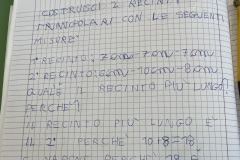 COSTRUISCI 2 RECINTI
TRIANGOLARI CON LE SEGUENTI
MISURE:
1° RECINTO: 7cm-7cm-7cm
2° RECINTO: 6cm-10cm-8cm
QUALE IL RECINTO PIÙ LUNGO?
PERCHÉ?
IL RECINTO PIÙ LUNGO È
IL 2° PERCHÈ 10+8=18
PERCHÈ